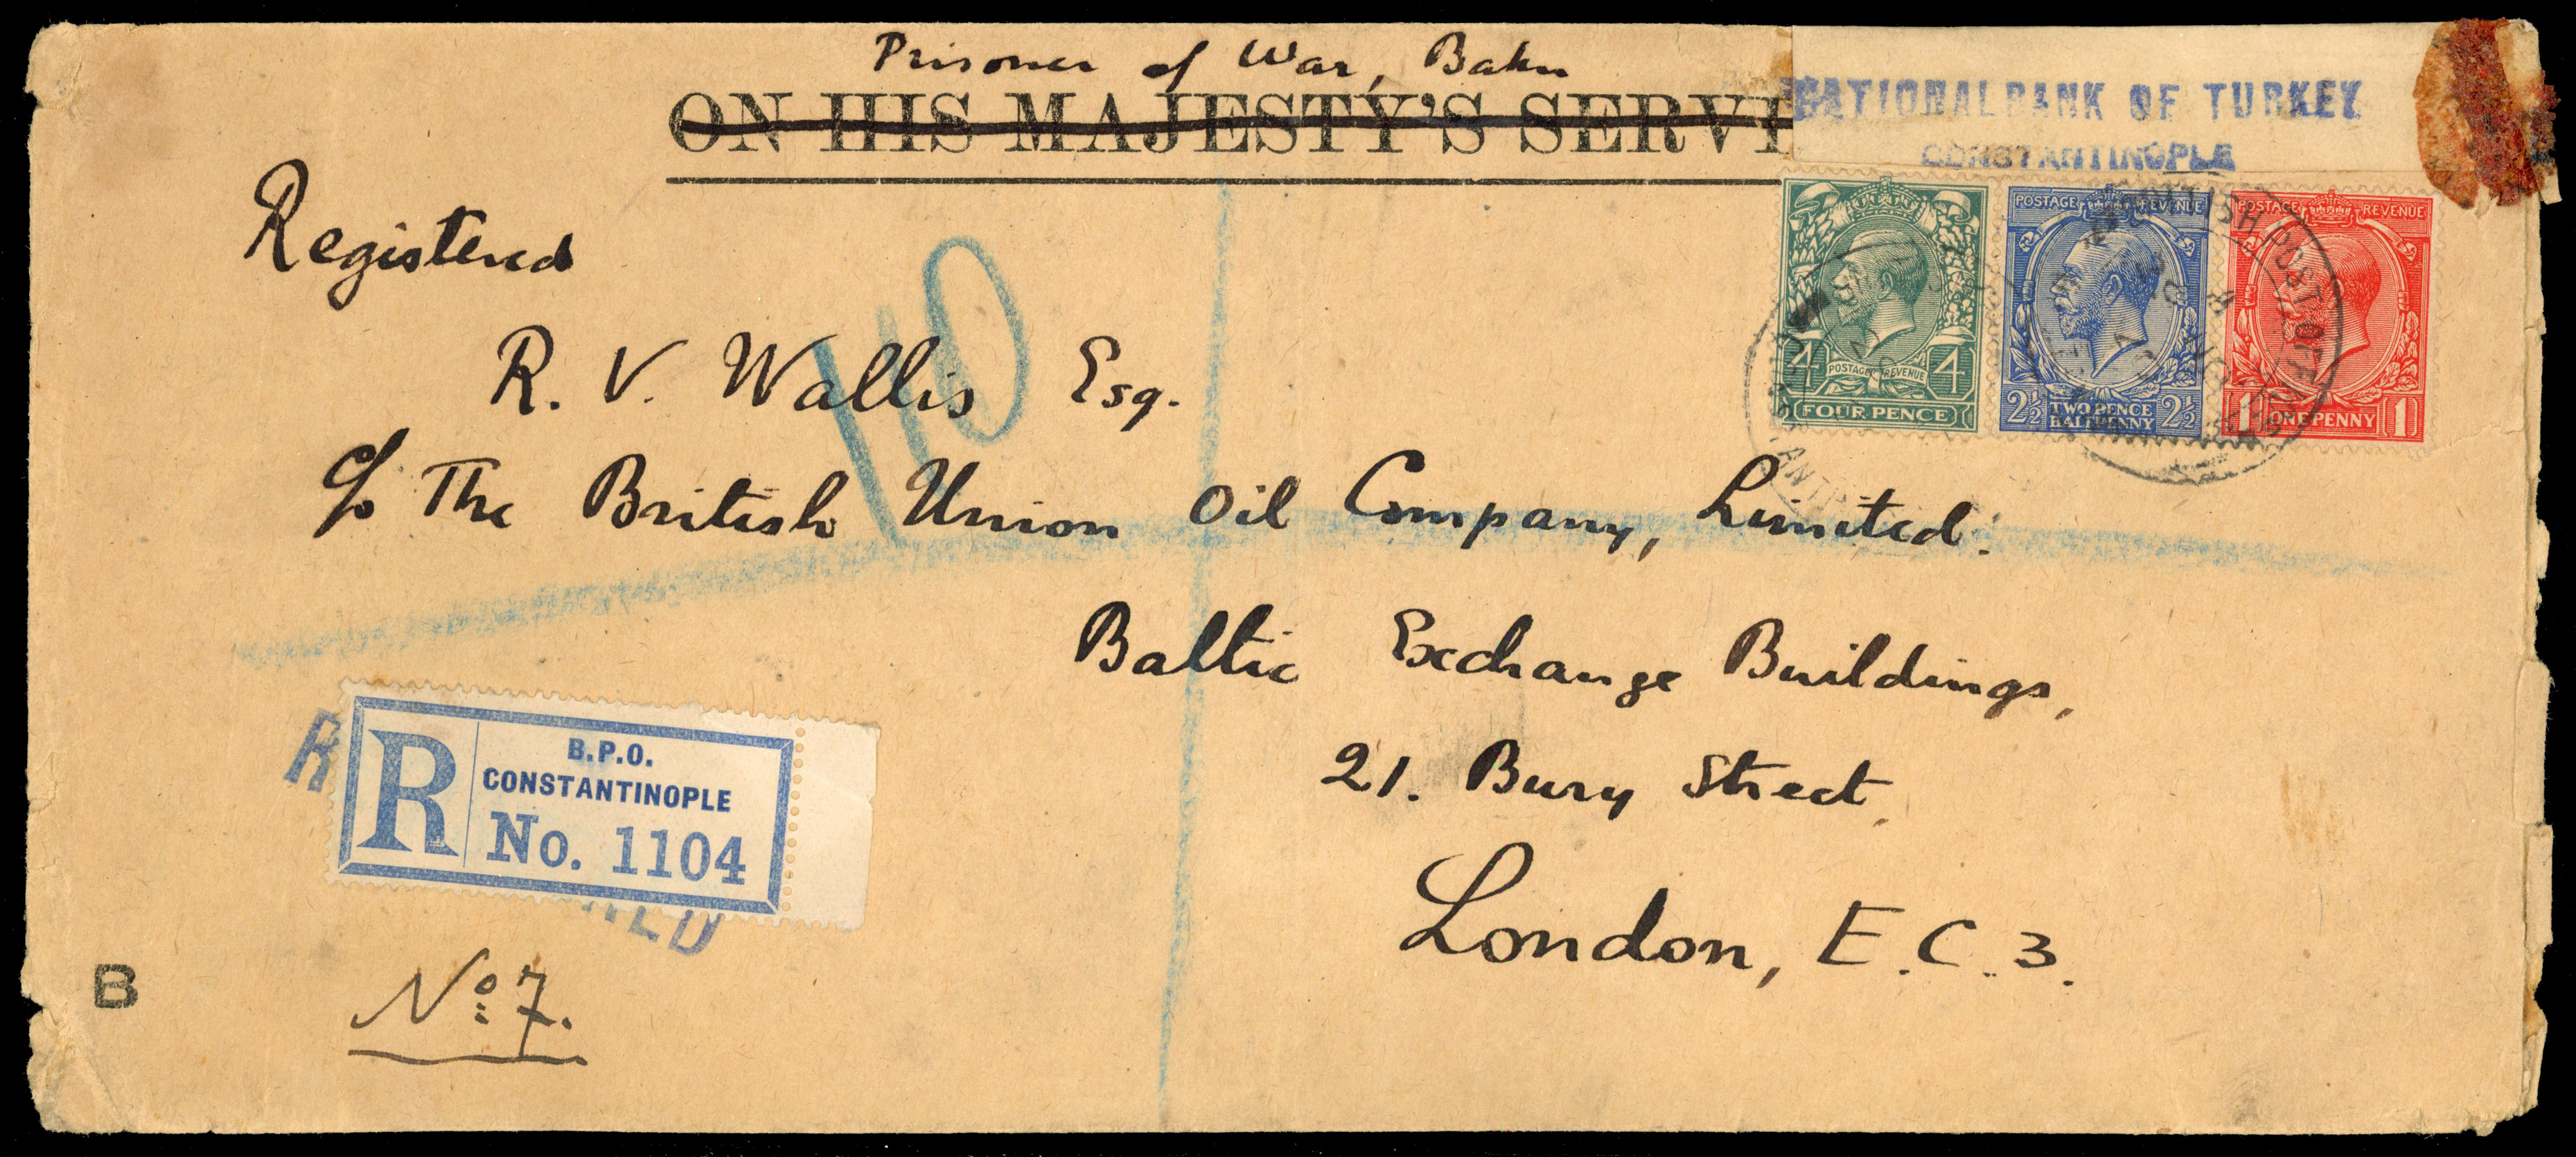 Prisoner of War, Baku
ON HIS MAJESTY'S SERVI
NATIONAL BANK OF TURKEY
CONSTANTINOPLE
Registered
110
POSTAGE REVENUE
4 4
FOUR PENCE
POSTAGE REVENUE
2½ TWO PENCE HALFPENNY 2½
POSTAGE REVENUE
1 ONE PENNY 1
BRITISH POST OFFICE
R. V. Wallis Esq.
c/o The British Union Oil Company, Limited.
Baltic Exchange Buildings,
21. Bury Street,
London, E.C.3.
R
R
B.P.O.
CONSTANTINOPLE
No. 1104
B
No: 7.